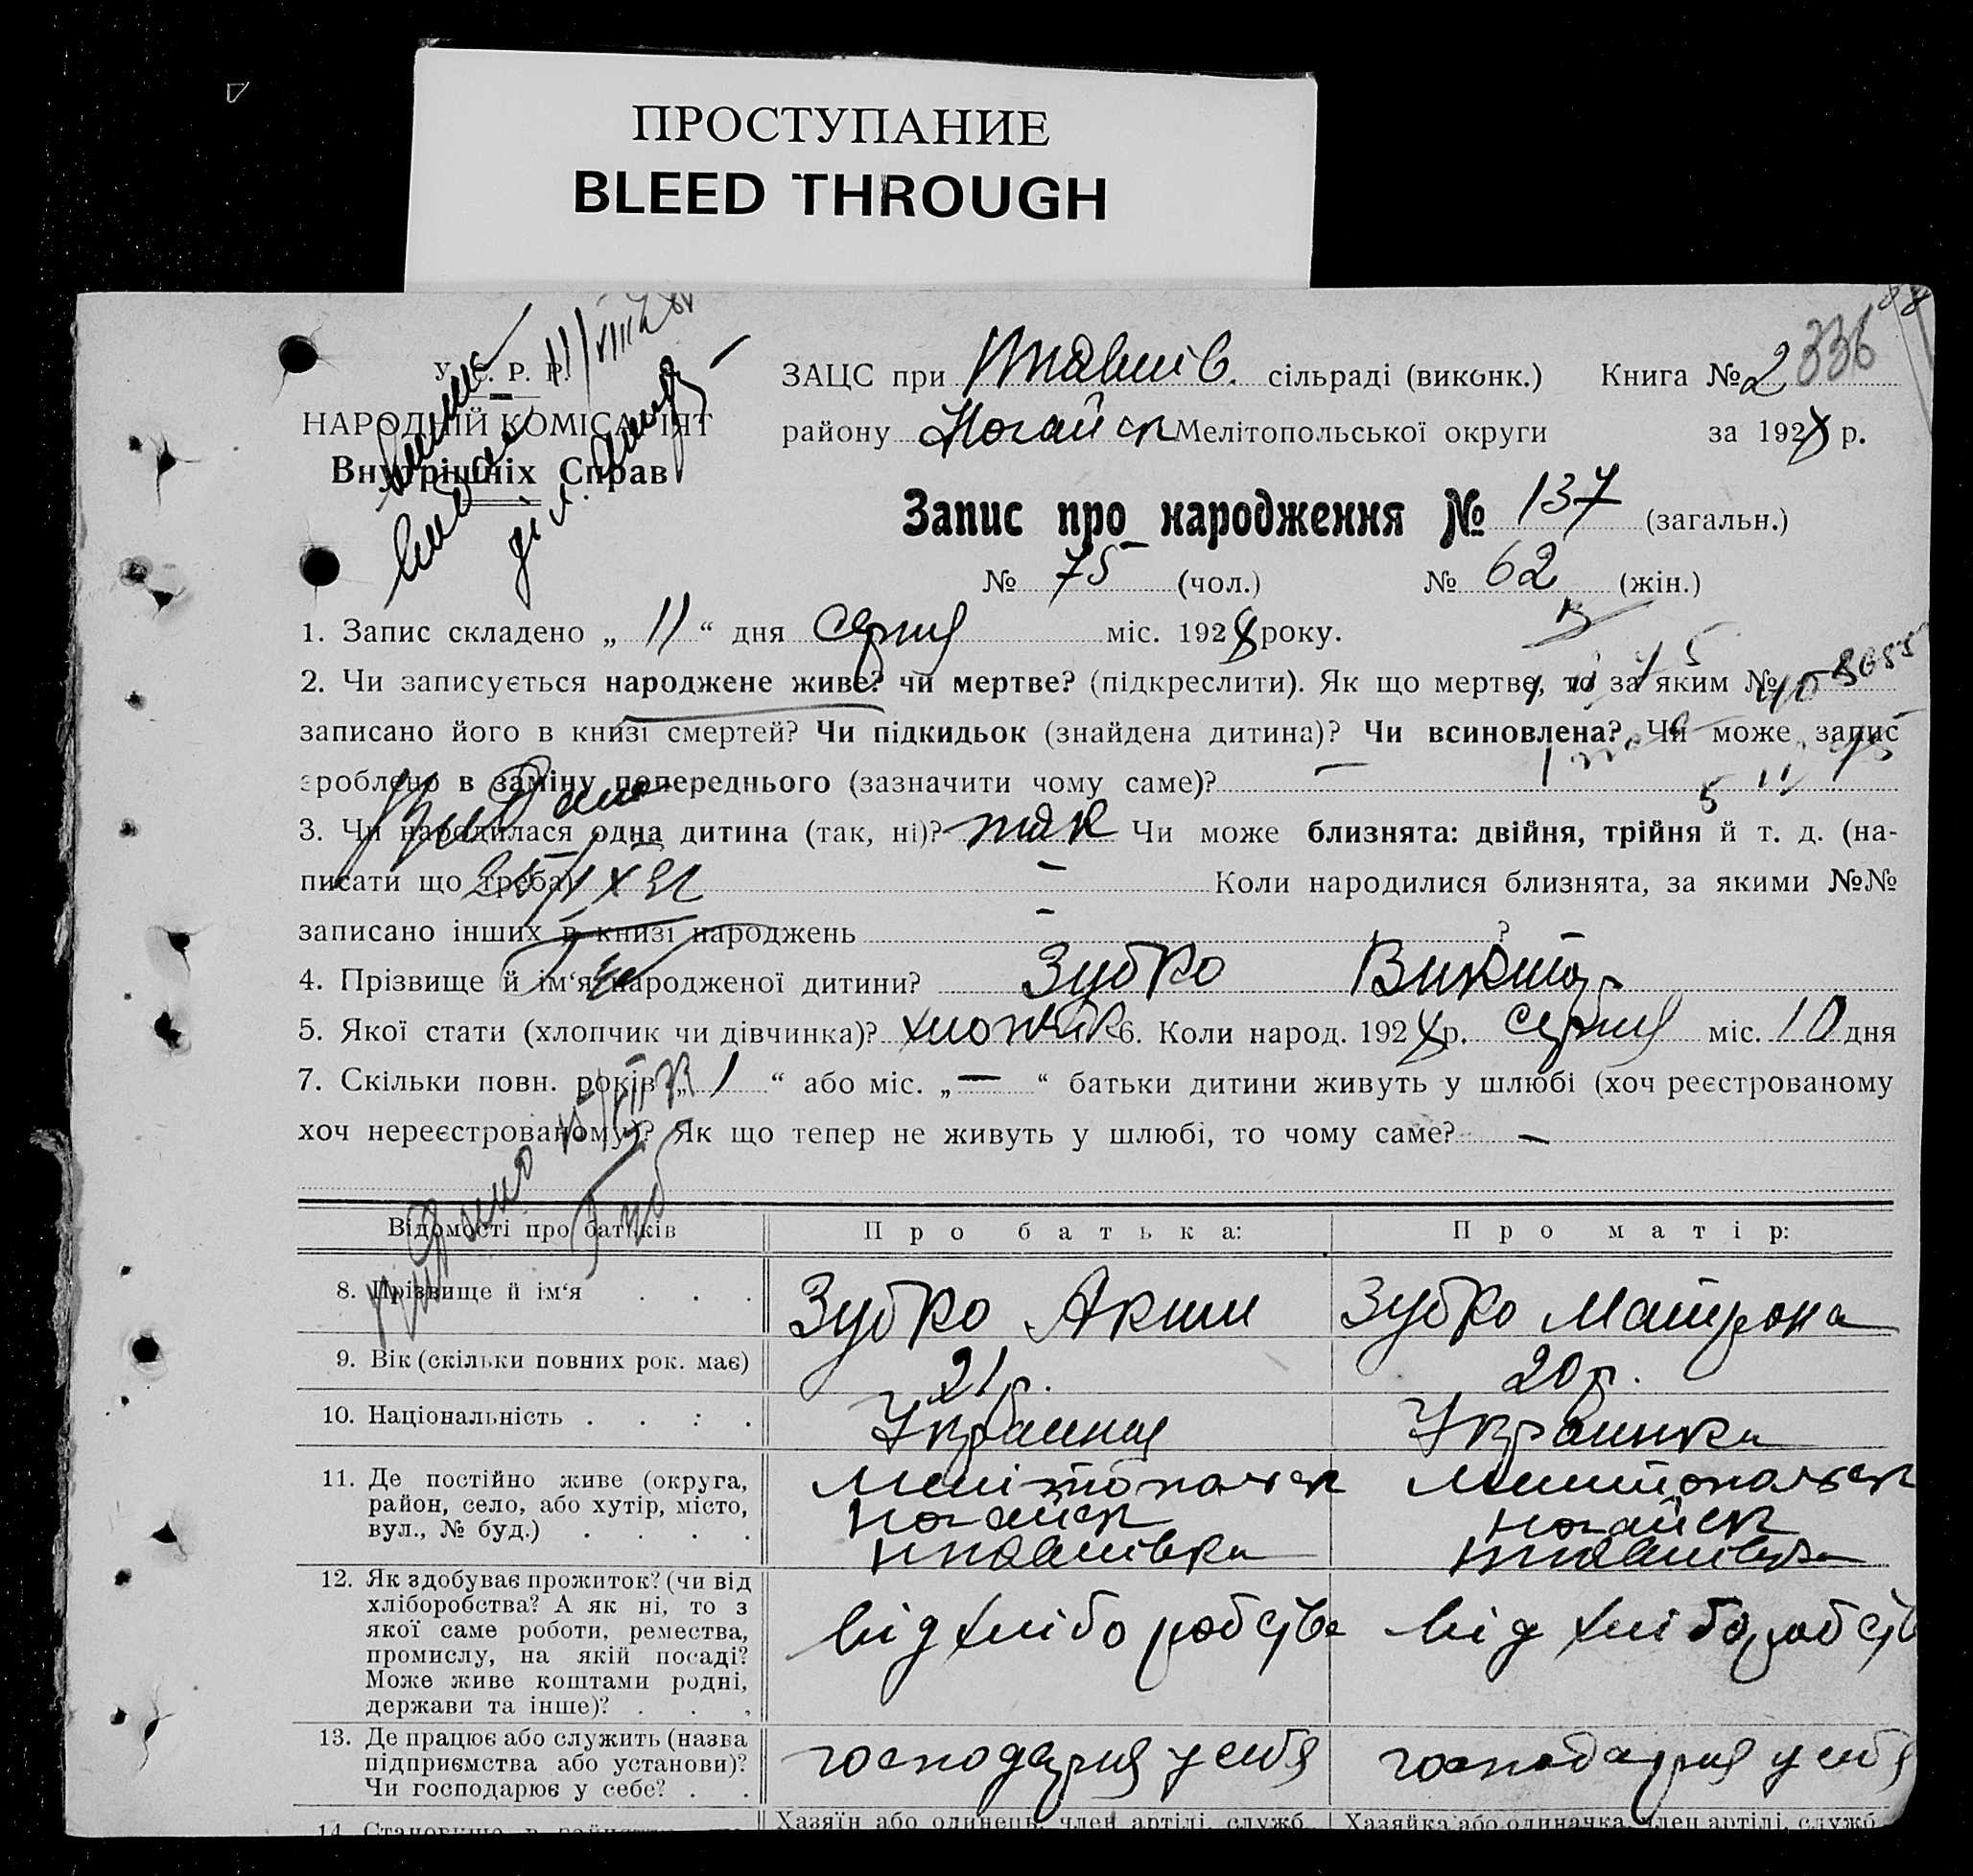 ПРОСТУПАНИЕ
BLEED THROUGH
336
У. С. Р. Р.
НАРОДНІЙ КОМІСАРІЯТ
Внутрішніх Справ
ЗАЦС при сільраді (виконк.) Книга № 2
району Ногайск Мелітопольської округи за 1928 р.
Запис про народження № 137 (загальн.)
№ 75 (чол.) № 62 (жін.)
1. Запис складено „ 11 “ дня серпня міс. 1928 року.
2. Чи записується народжене живе? чи мертве? (підкреслити). Як що мертве, то за яким №
записано його в книзі смертей? Чи підкидьок (знайдена дитина)? Чи всиновлена? Чи може запис
зроблено в заміну попереднього (зазначити чому саме)? —
3. Чи народилася одна дитина (так, ні)? так Чи може близнята: двійня, трійня й т. д. (на-
писати що треба) — Коли народилися близнята, за якими №№
записано інших в книзі народжень — ?
4. Прізвище й ім‘я народженої дитини? Зубко Виктор
5. Якої стати (хлопчик чи дівчинка)? хлопчик 6. Коли народ. 1928 р. серпня міс. 10 дня
7. Скільки повн. років „ 1 “ або міс. „ — “ батьки дитини живуть у шлюбі (хоч реєстрованому
хоч нереєстрованому)? Як що тепер не живуть у шлюбі, то чому саме? —
Відомості про батьків Про батька: Про матір:
8. Прізвище й ім‘я . . . Зубко Аким Зубко Матрона
9. Вік (скільки повних рок. має) 21 р. 20 р.
10. Національність . . : . Украинец Украинка
11. Де постійно живе (округа,
район, село, або хутір, місто,
вул., № буд.) . . . .
Мелітопольск Мелитопольск
Ногайск Ногайск
12. Як здобуває прожиток? (чи від
хліборобства? А як ні, то з
якої саме роботи, ремества,
промислу, на якій посаді?
Може живе коштами родні,
держави та інше)? . . .
від хліборобства від хліборобств
13. Де працює або служить (назва
підприємства або установи)?
Чи господарює у себе? . .
господарня у себя господарня у себя
Хазяїн або одинець, член артілі, служб. Хазяйка або одиначка, член артілі, служб.